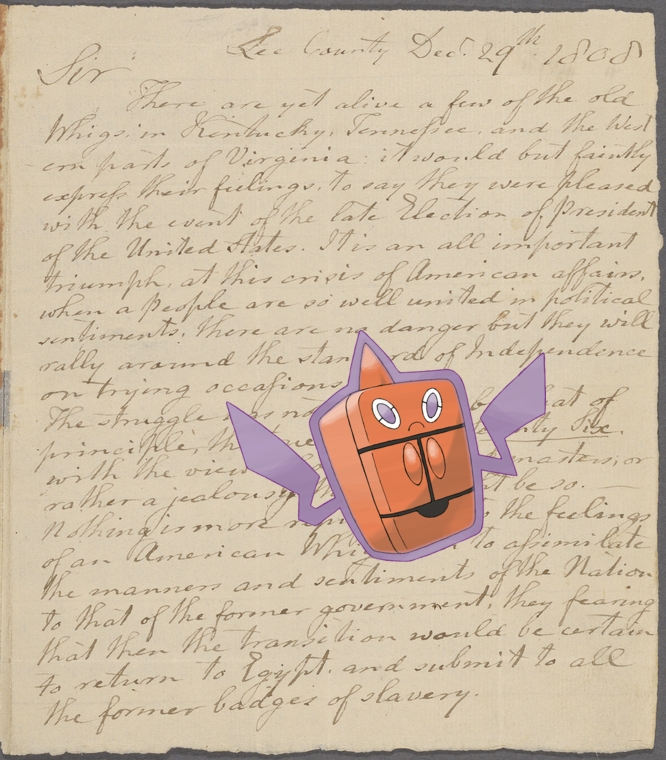 Lee County Dec. 29th 1808
Sir
There are yet alive a few of the old
Whigs in Kentucky, Tennessee, and the West
ern parts of Virginia: it would but faintly
express their feelings, to say they were pleased
with the event of the late Election of President
of the United States. It is an all important
triumph, at this crisis of American affairs,
when a People are so well united in political
sentiments, there are no danger but they will
rally around the stan rd of Independence
on trying occasions
The struggle at of
principle, the ty Six
with the view masters, or
rather a jealousy t be so.
Nothing is more the feelings
of an American Whi to assimilate
the manners and sentiments of the Nation
to that of the former government, they fearing
that then the transition would be certain
to return to Egypt, and submit to all
the former badges of slavery.